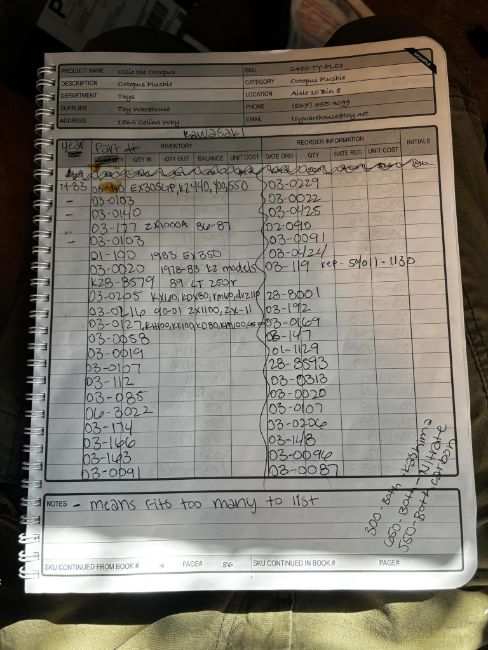 SAMPLE
PRODUCT NAME Ollie the Octopus SKU 2485-TY-PL01
DESCRIPTION Octopus Plushie CATEGORY Octopus Plushie
DEPARTMENT Toys LOCATION Aisle 10 Bin 8
SUPPLIER Toy Warehouse PHONE (864) 555-3099
ADDRESS 1865 Colins Way EMAIL toywarehouse@toy.net
Kawasaki
year Part # INVENTORY REORDER INFORMATION INITIALS
QTY IN QTY OUT BALANCE UNIT COST DATE ORD QTY DATE REC UNIT COST
74-83 EX305GP, KZ440, 400, 550 03-0229
- 03-0103 03-0022
- 03-0140 03-0425
- 03-177 ZX1000A 86-87 02-0910
- 03-0103 03-0091
01-100 1983 EX350 03-0424
03-0020 1978-83 KZ models 03-119 rep-59011-1130
K28-8579 89 LT 250r
03-0205 KX60, KDX80, 28-8001
03-0216 90-01 ZX1100, ZX-11 03-192
03-0127, KH100, KE100, KD80, KM100 03-0169
03-0058 03-147
03-0019 01-1129
03-0107 28-8593
03-112 03-0313
03-085 03-0020
06-3022 03-0107
03-174 03-0206
03-166 03-148
03-163 03-0096
03-0091 03-0087
300-Both-Kashima
650-Both-Nitrate
550-Both-Carbon
NOTES - means fits too many to list
SKU CONTINUED FROM BOOK # PAGE# 86 SKU CONTINUED IN BOOK # PAGE#